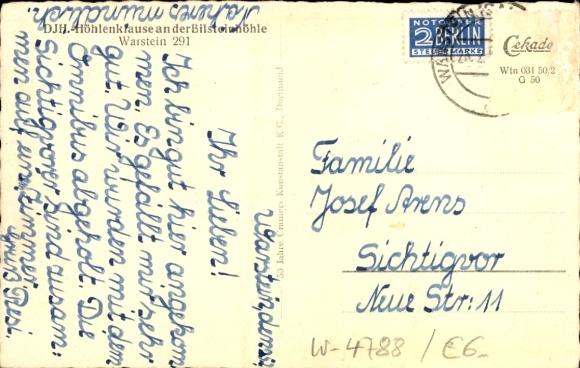 DJH.-Höhlenklause an der Bilsteinhöhle
Warstein 291
NOTOPFER
2 BERLIN
STEUERMARKE
Cekade
Wtn 031 50/2
G 50
50 Jahre Cramers Kunstanstalt K.G., Dortmund
Warstein, den
Ihr Lieben!
Ich bin gut hier angekom
men. Es gefällt mir sehr
gut. Wir wurden mit dem
Omnibus abgeholt. Die
Sichtigvorer sind zusam:
men auf ein Zimmer
Gruß Resi
Näheres mündlich.
Familie
Josef Arens
Sichtigvor
Neue Str: 11
W-4788 / €6,-